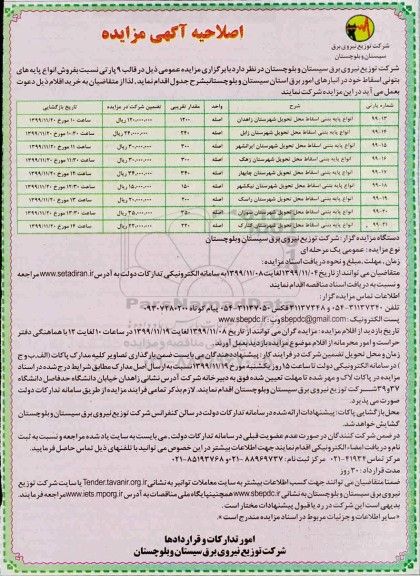 اصلاحیه آگهی مزایده
شرکت توزیع نیروی برق
سیستان و بلوچستان
شرکت توزیع نیروی برق سیستان و بلوچستان در نظر دارد با برگزاری مزایده عمومی ذیل در قالب ۹ پارتی نسبت بفروش انواع پایه های
بتونی اسقاط خود در انبارهای امور برق استان سیستان و بلوچستان بشرح جدول اقدام نماید. لذا از متقاضیان به خرید اقلام ذیل دعوت
بعمل می آید در این مزایده شرکت نمایند
شماره پارتی شرح واحد مقدار تقریبی تضمین شرکت در مزایده تاریخ بازگشایی
۹۹-۱۳ انواع پایه بتنی اسقاط محل تحویل شهرستان زاهدان اصله ۱۲۰۰ ۱۲۰,۰۰۰,۰۰۰ ریال ساعت ۱۰ مورخ ۱۳۹۹/۱۱/۲۰
۹۹-۱۴ انواع پایه بتنی اسقاط محل تحویل شهرستان زابل اصله ۲۴۰ ۲۴,۰۰۰,۰۰۰ ریال ساعت ۱۰:۳۰ مورخ ۱۳۹۹/۱۱/۲۰
۹۹-۱۵ انواع پایه بتنی اسقاط محل تحویل شهرستان ایرانشهر اصله ۳۰۰ ۳۰,۰۰۰,۰۰۰ ریال ساعت ۱۱ مورخ ۱۳۹۹/۱۱/۲۰
۹۹-۱۶ انواع پایه بتنی اسقاط محل تحویل شهرستان زهک اصله ۳۰۰ ۳۰,۰۰۰,۰۰۰ ریال ساعت ۱۱:۳۰ مورخ ۱۳۹۹/۱۱/۲۰
۹۹-۱۷ انواع پایه بتنی اسقاط محل تحویل شهرستان چابهار اصله ۳۴۰ ۳۴,۰۰۰,۰۰۰ ریال ساعت ۱۲ مورخ ۱۳۹۹/۱۱/۲۰
۹۹-۱۸ انواع پایه بتنی اسقاط محل تحویل شهرستان نیکشهر اصله ۱۵۰ ۱۵,۰۰۰,۰۰۰ ریال ساعت ۱۲:۳۰ مورخ ۱۳۹۹/۱۱/۲۰
۹۹-۱۹ انواع پایه بتنی اسقاط محل تحویل شهرستان راسک اصله ۲۰۰ ۲۰,۰۰۰,۰۰۰ ریال ساعت ۱۳ مورخ ۱۳۹۹/۱۱/۲۰
۹۹-۲۰ انواع پایه بتنی اسقاط محل تحویل شهرستان سوران اصله ۳۵۰ ۳۵,۰۰۰,۰۰۰ ریال ساعت ۱۳:۳۰ مورخ ۱۳۹۹/۱۱/۲۰
۹۹-۲۱ انواع پایه بتنی اسقاط محل تحویل شهرستان کنارک اصله ۲۲۰ ۲۲,۰۰۰,۰۰۰ ریال ساعت ۱۴ مورخ ۱۳۹۹/۱۱/۲۰
دستگاه مزایده گزار: شرکت توزیع نیروی برق سیستان و بلوچستان
نوع مزایده: عمومی یک مرحله ای
زمان، مهلت، مبلغ و نحوه دریافت اسناد مزایده:
متقاضیان می توانند از تاریخ ۱۳۹۹/۱۱/۰۴ لغایت ۱۳۹۹/۱۱/۰۸ به سامانه الکترونیکی تدارکات دولت به آدرس www.setadiran.ir مراجعه
و نسبت به دریافت اسناد مناقصه اقدام نمایند
اطلاعات تماس مزایده گزار:
تلفن ۳۱۱۳۷۳۴۰-۰۵۴ و ۳۱۱۳۷۳۴۸ فکس ۳۱۱۳۷۰۵۰-۰۵۴ پیام کوتاه ۰۹۳۰۷۳۸۰۲۰۰
پست الکترونیک: sbepdc@gmail.com وب: www.sbepdc.ir
تاریخ بازدید از اقلام مزایده: مزایده گران می توانند از تاریخ ۱۳۹۹/۱۱/۰۸ لغایت ۱۳۹۹/۱۱/۱۹ در ساعات ۱۰ لغایت ۱۳ با هماهنگی دفتر
حراست و امور محرمانه از اقلام موضوع مزایده بازدید بعمل آورند.
زمان و محل تحویل تضمین شرکت در فرایند کار: پیشنهاد دهندگان می بایست ضمن بارگذاری تصاویر کلیه مدارک پاکات (الف،ب و ج
) در سامانه الکترونیکی دولت تا ساعت ۱۵ روز یکشنبه مورخ ۱۳۹۹/۱۱/۱۹ نسبت به ارسال اصل مدارک مطابق شرایط درج شده در اسناد
مزایده در پاکات لاک و مهر شده تا مهلت تعیین شده فوق به دبیرخانه شرکت آدرس نشانی زاهدان خیابان دانشگاه حدفاصل دانشگاه
۳۷ و ۳۹ شرکت توزیع نیروی برق سیستان و بلوچستان اقدام نمایند. لازم بذکر تمامی فرایند مزایده از طریق سامانه تدارکات دولت
صورت می پذیرد.
محل بازگشایی پاکات: پیشنهادات ارائه شده در سامانه تدارکات دولت در سالن کنفرانس شرکت توزیع نیروی برق سیستان و بلوچستان
گشایش خواهد شد.
در ضمن شرکت کنندگان در صورت عدم عضویت قبلی در سامانه تدارکات دولت، می بایست به سایت یاد شده مراجعه و نسبت به ثبت
نام و دریافت امضاء الکترونیکی اقدام نمایند جهت اطلاعات بیشتر در این خصوص می توانید با تلفنهای ذیل تماس حاصل فرمایید.
مرکز تماس ۴۱۹۳۴-۰۲۱ مرکز ثبت نام: ۸۸۹۶۹۷۳۷-۰۲۱ و ۸۵۱۹۳۷۶۸-۰۲۱
مدت قرارداد: ۳۰ روز
ضمناً متقاضیان می توانند جهت کسب اطلاعات بیشتر به سایت معاملات توانیر به نشانی Tender.tavanir.org.ir یا سایت شرکت توزیع
نیروی برق سیستان و بلوچستان به نشانی www.sbepdc.ir همچنین پایگاه ملی مناقصات به آدرس www.iets.mporg.ir مراجعه فرمایند.
بدیهی است این شرکت در رد یا قبول پیشنهادات مختار است.
«سایر اطلاعات و جزئیات مربوط در اسناد مزایده مندرج است».
امور تدارکات و قراردادها
شرکت توزیع نیروی برق سیستان و بلوچستان